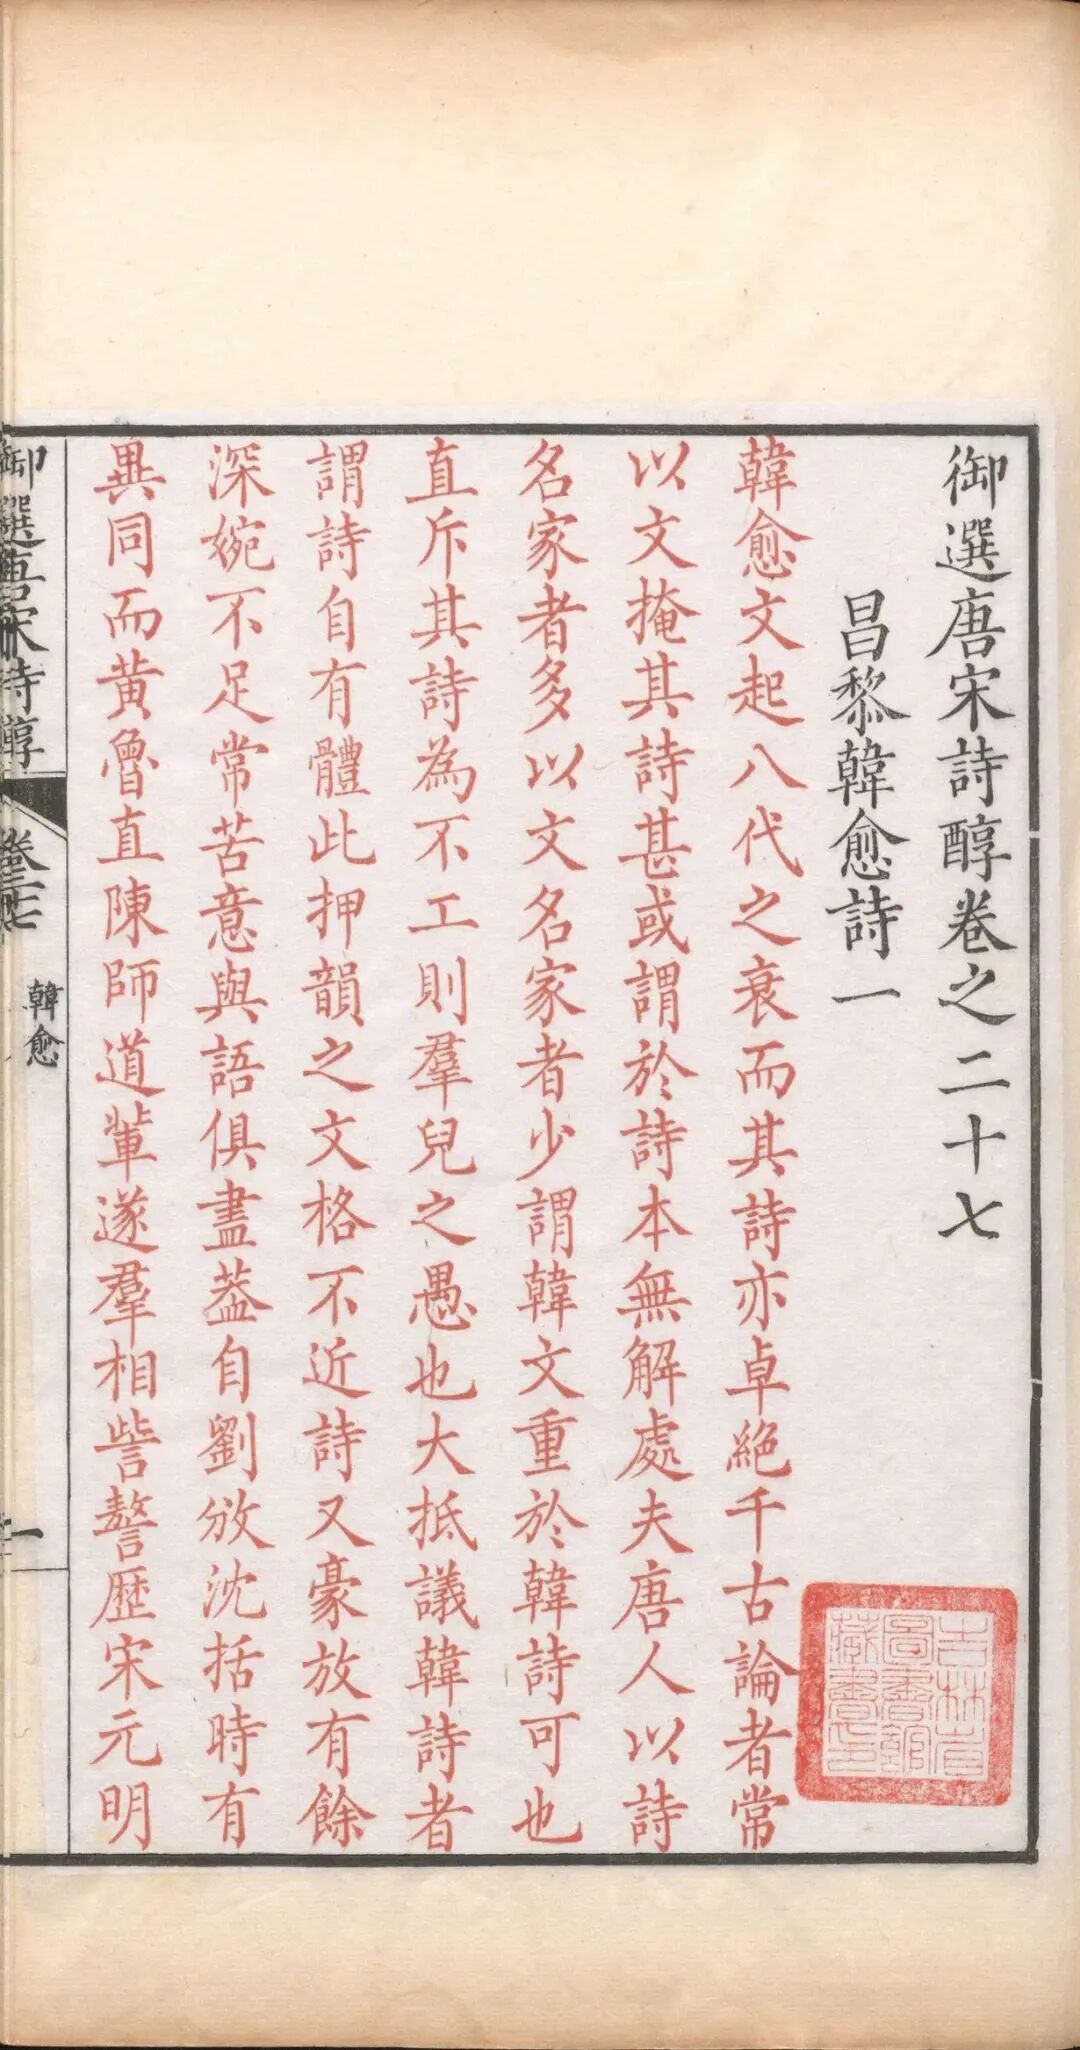 御選唐宋詩醇卷之二十七
昌黎韓愈詩一
韓愈文起八代之衰而其詩亦卓絕千古論者常
以文掩其詩甚或謂於詩本無解處夫唐人以詩
名家者多以文名家者少謂韓文重於韓詩可也
直斥其詩為不工則羣兒之愚也大抵議韓詩者
謂詩自有體此押韻之文格不近詩又豪放有餘
深婉不足常苦意與語俱盡葢自劉攽沈括時有
異同而黃魯直陳師道輩遂羣相訾謷歷宋元明
御選唐宋詩醇
卷二十七
韓愈
一
吉林省
圖書館
藏書印